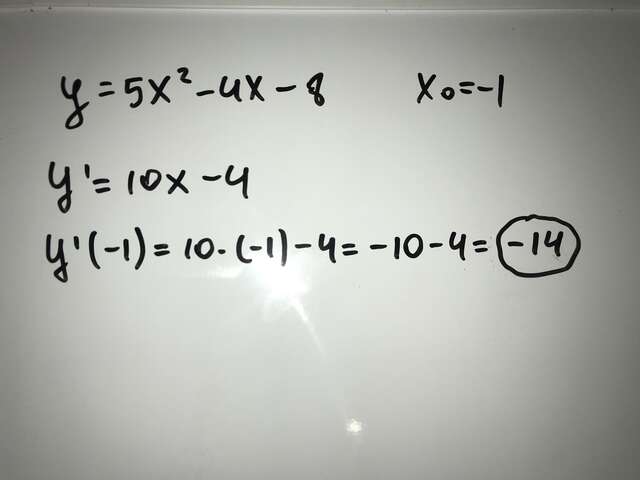 y = 5x² - 4x - 8 x₀ = -1
y' = 10x - 4
y'(-1) = 10·(-1) - 4 = -10 - 4 = -14